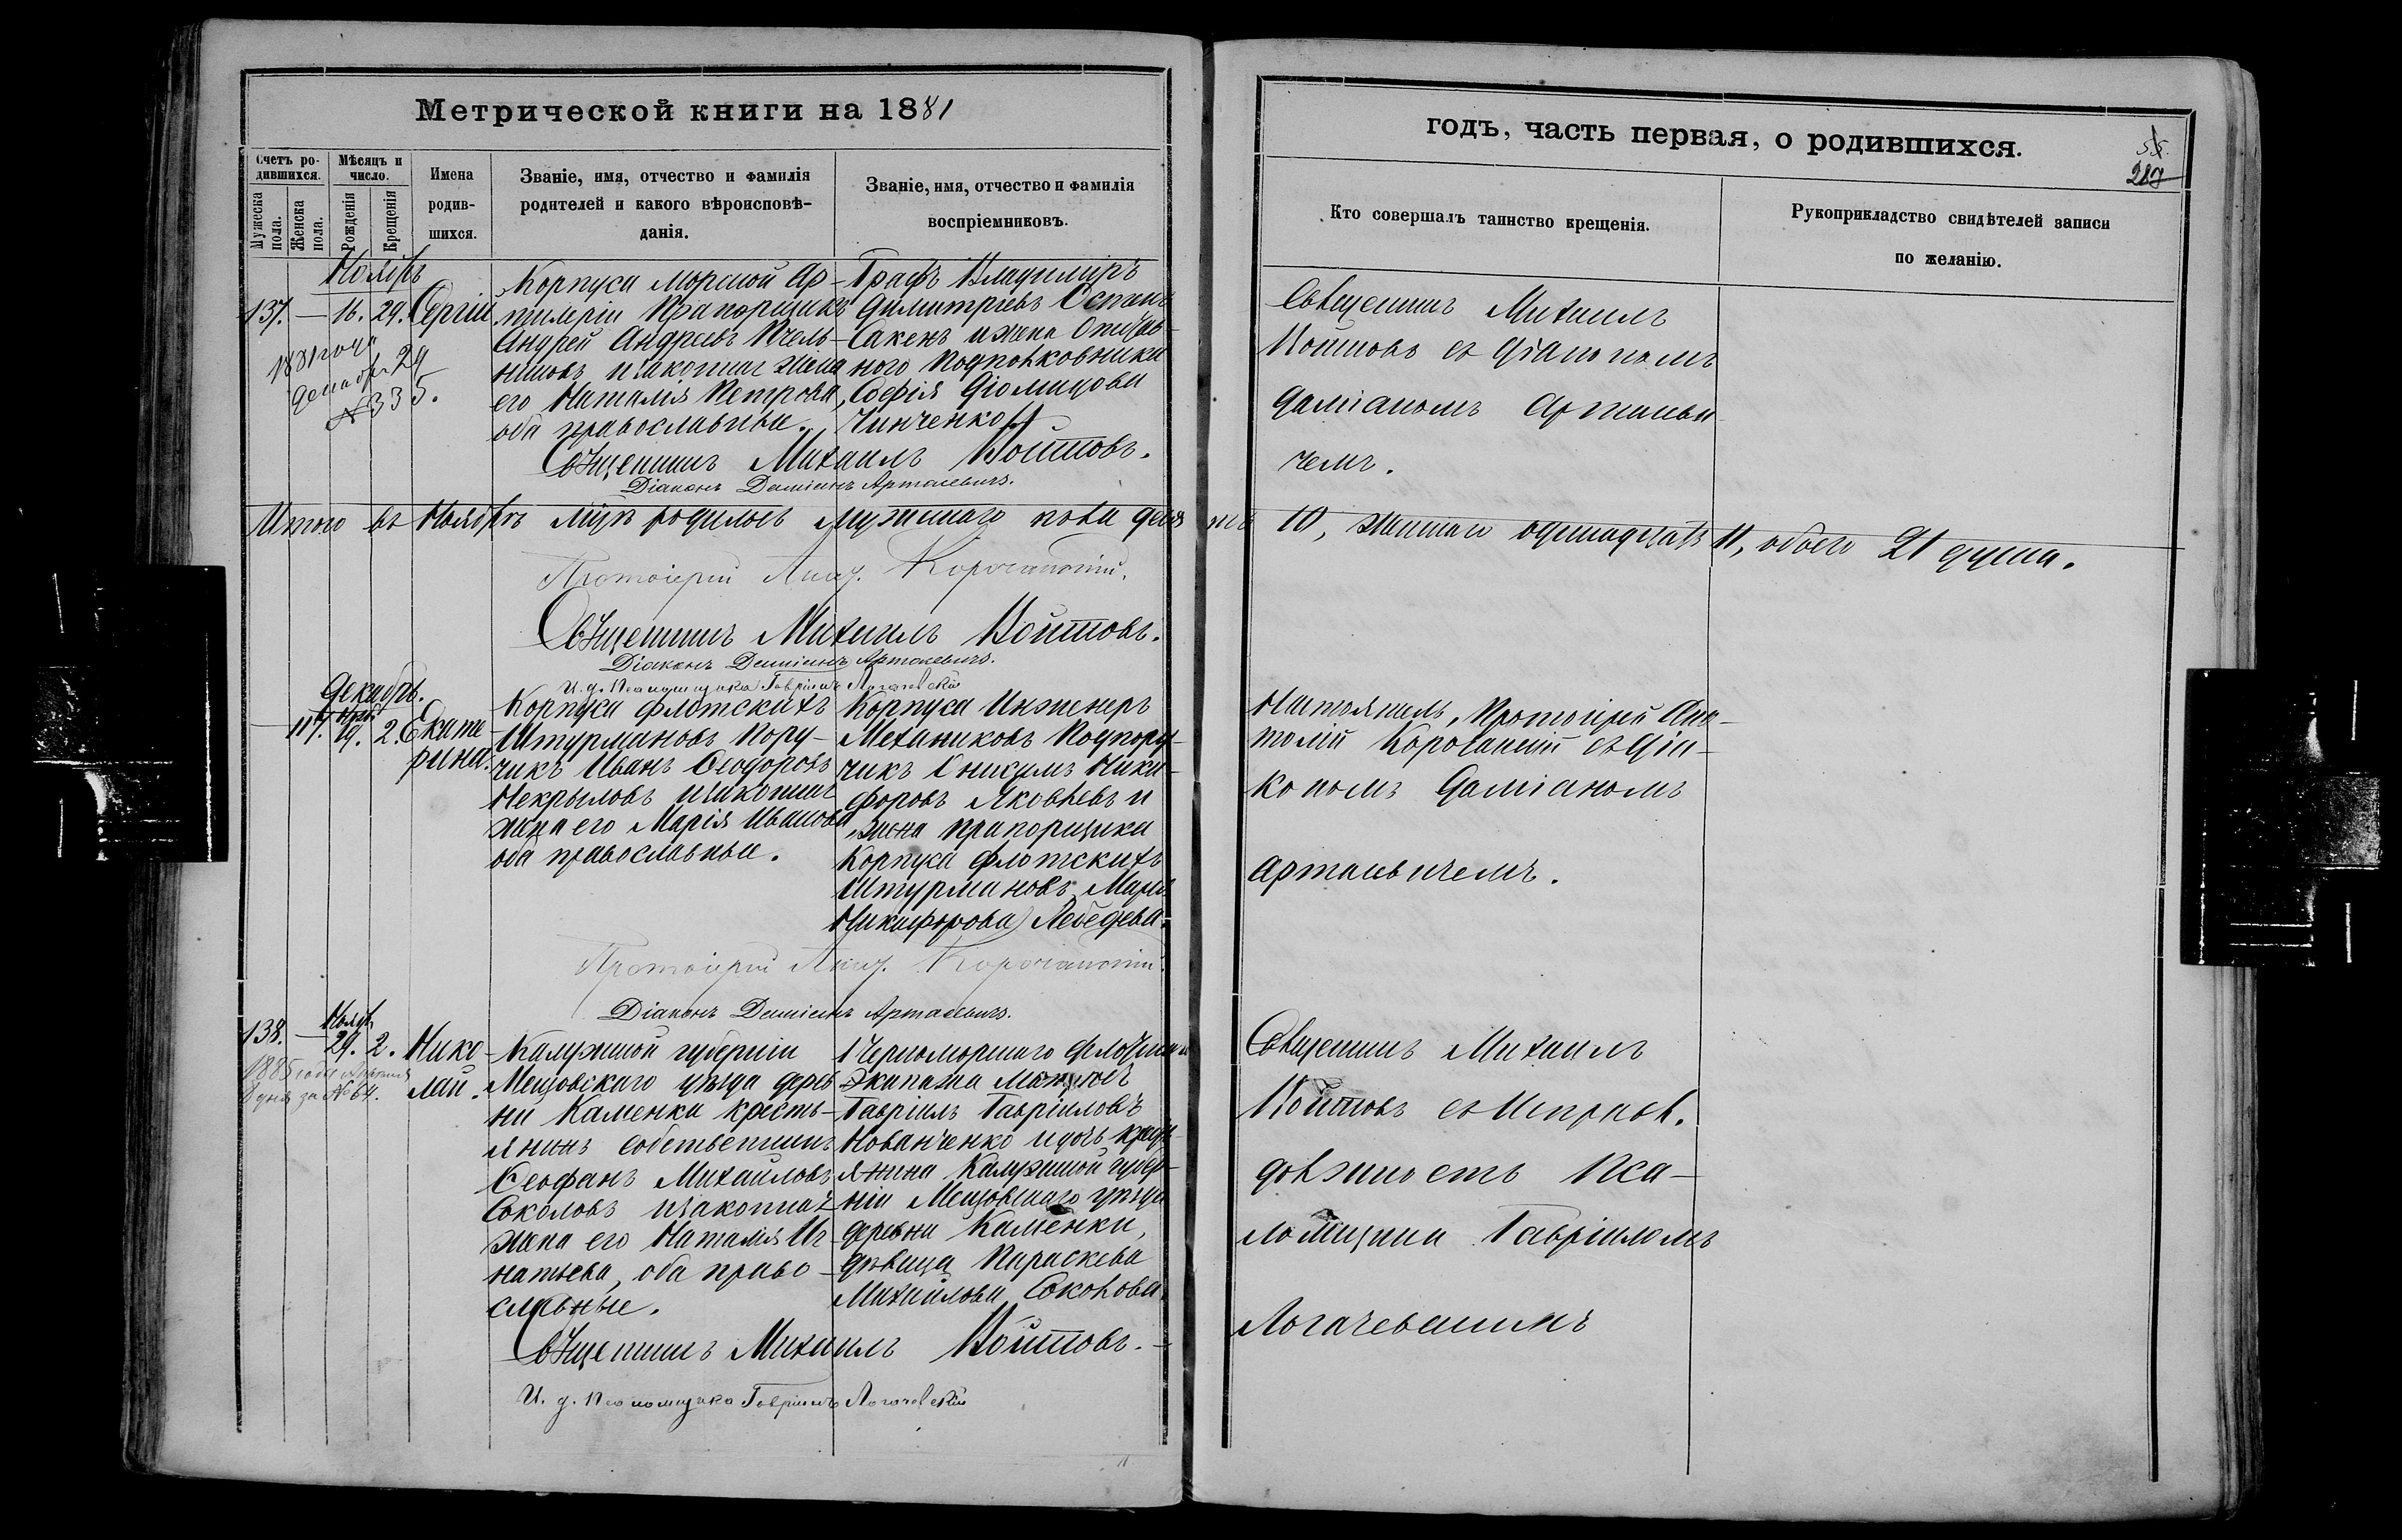 Метрической книги на 1881
годъ, часть первая, о родившихся.
55.
289
Счетъ ро-
дившихся.
Мужеска пола.
Женска пола.
Мѣсяцъ и
число.
Рожденія
Крещенія
Имена
родив-
шихся.
Званіе, имя, отчество и фамилія
родителей и какого вѣроисповѣ-
данія.
Званіе, имя, отчество и фамилія
воспріемниковъ.
Кто совершалъ таинство крещенія.
Рукоприкладство свидѣтелей записи
по желанію.
Ноябрь
137. — 16. 29. Сергій
1881 года
Декабр. 29
№ 335.
Корпуса Морской Ар-
тилеріи Прапорщикъ
Андрей Андреевъ Пчель-
никовъ и законная жена
его Наталія Петрова,
оба православные.
Графъ Владиміръ
Димитріевъ Остенъ
Сакенъ и жена
ного Подполковника
Софія Діомидова
Чинченко
Священникъ Михаилъ
Войтовъ съ Діакономъ
Даміаномъ Артасеви-
чемъ.
Священникъ Михаилъ Войтовъ.
Діаконъ Даміанъ Артасевичъ.
Итого въ Ноябрѣ м-цѣ родилось мужскаго пола десять 10, женскаго одинадцать 11, обоего 21 душа.
Протоіерей Анат. Корочанскій.
Священникъ Михаилъ Войтовъ.
Діаконъ Даміанъ Артасевичъ.
И. д. Псаломщика Гавріилъ Логачевскій
Декабрь.
Нояб.
— 117. 19. 2. Екате-
рина.
Корпуса Флотскихъ
Штурмановъ Пору-
чикъ Иванъ Ѳеодоровъ
Некрыловъ и законная
жена его Марія Иванова
оба православные.
Корпуса Инженеръ
Механиковъ Подпору-
чикъ Онисимъ Ники-
форовъ Яковлевъ и
жена прапорщика
Корпуса Флотскихъ
Штурмановъ, Марія
Никифорова Лебедева.
Настоятель, Протоіерей Ана-
толій Корочанскій съ Діа-
кономъ Даміаномъ
Артасевичемъ.
Протоіерей Анат. Корочанскій
Діаконъ Даміанъ Артасевичъ.
Нояб.
138. — 29. 2. Нико-
лай.
1885 года
8 дня за № 64.
Калужской губерніи
Мещовскаго уѣзда дерев-
ни Каменки кресть-
янинъ собственникъ
Ѳеофанъ Михайловъ
Соколовъ и законная
жена его Наталія Иг-
натьева, оба право-
славные.
1 Черноморскаго Флотскаго
Экипажа матросъ
Гавріилъ Гавріиловъ
Нованченко и дочь крест-
янина Калужской губер-
ніи Мещовскаго уѣзда
деревни Каменки,
дѣвица Параскева
Михайлова Соколова.
Священникъ Михаилъ
Войтовъ съ Исправ.
должность Пса-
ломщика Гавріиломъ
Логачевскимъ
Священникъ Михаилъ Войтовъ.
И. д. Псаломщика Гавріилъ Логачевскій